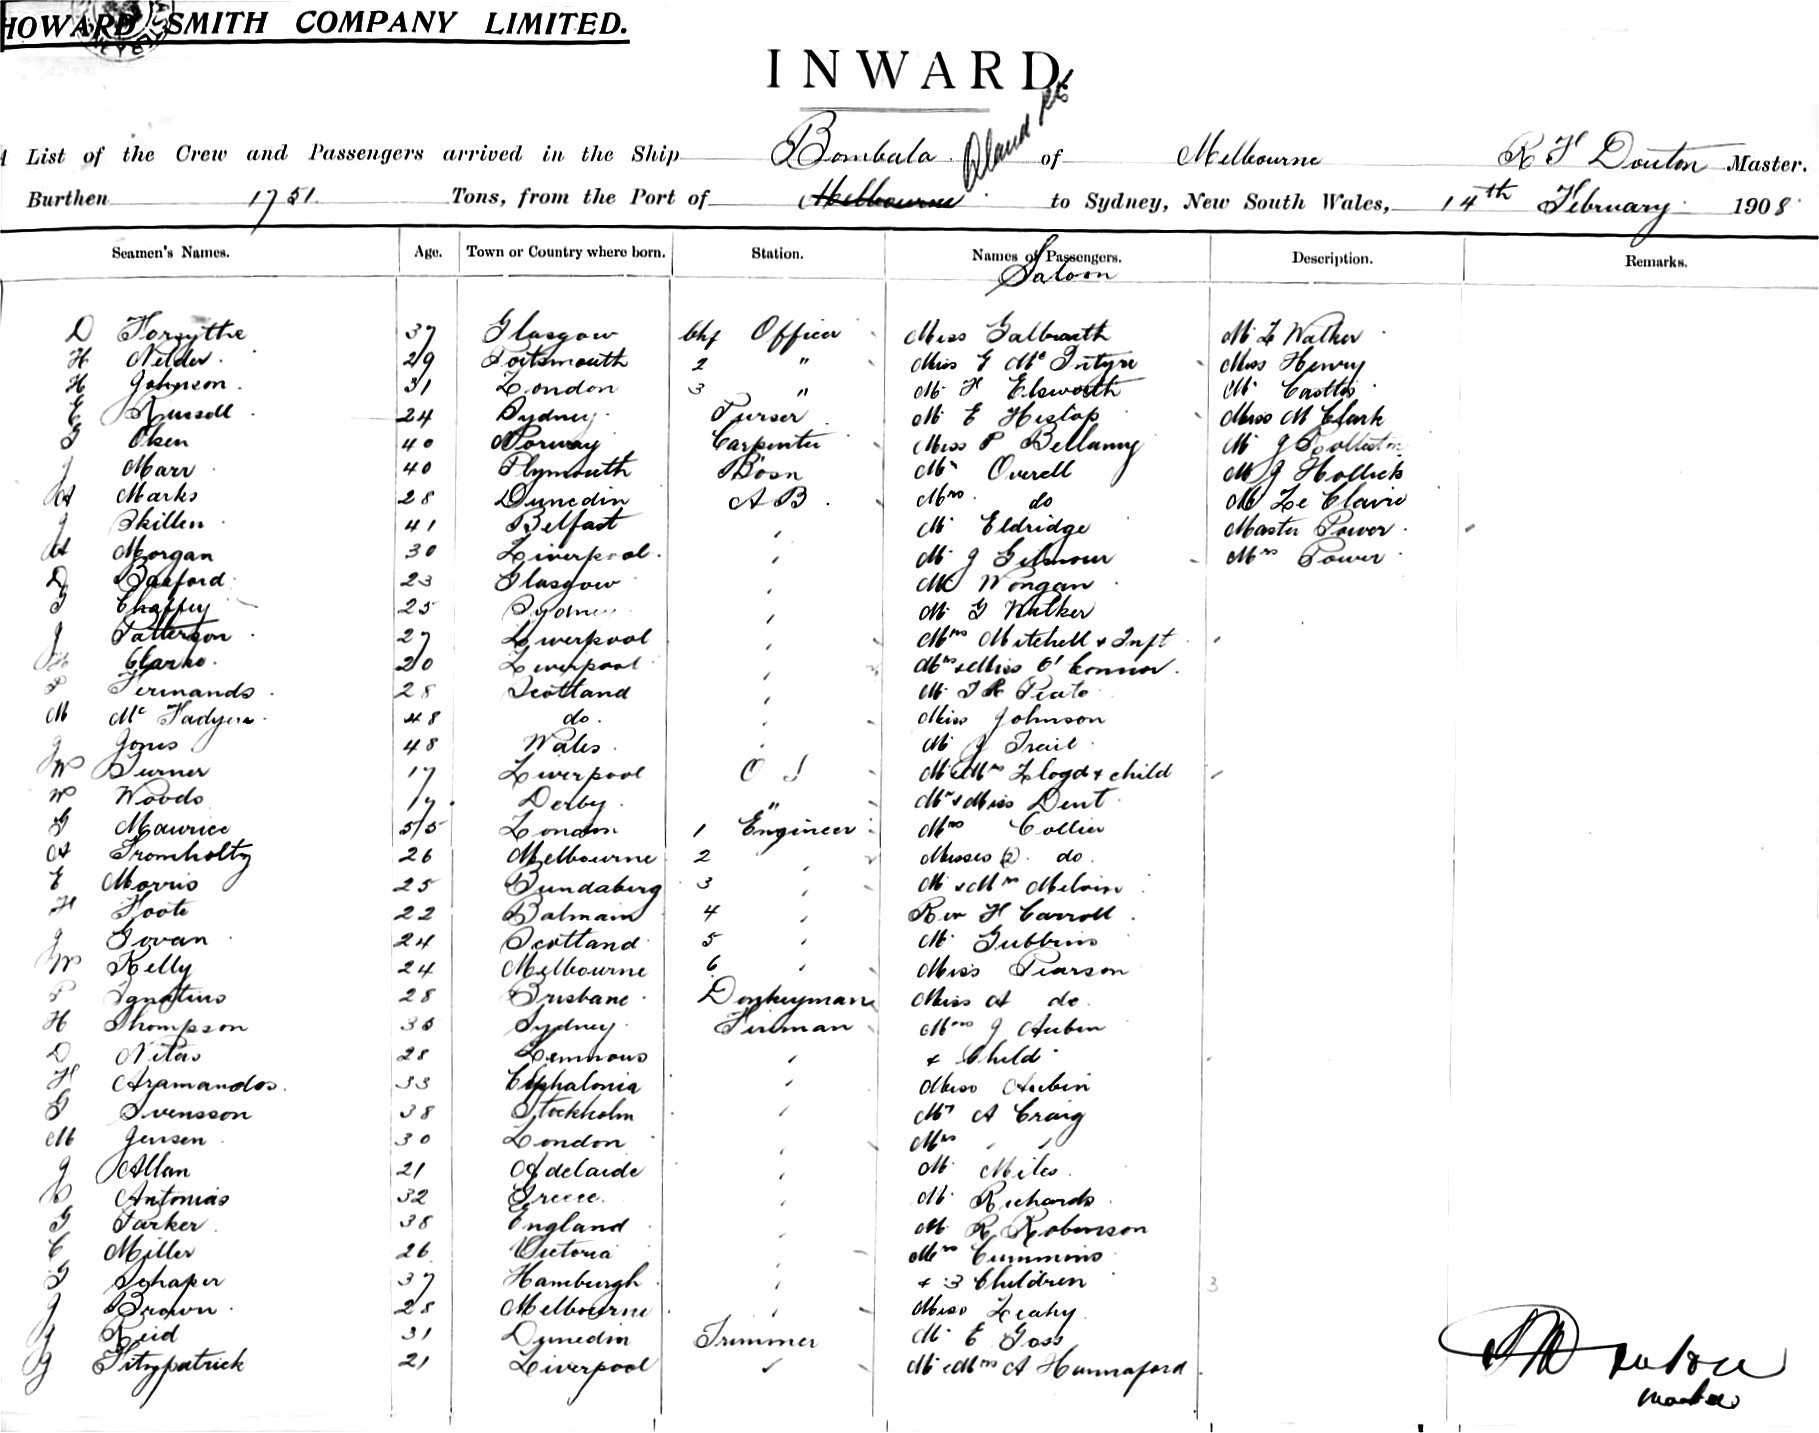 HOWARD SMITH COMPANY LIMITED.
INWARD.
List of the Crew and Passengers arrived in the Ship Bombala of Melbourne R F Douton Master.
Burthen 1751 Tons, from the Port of Melbourne to Sydney, New South Wales, 14th February 1908
Seamen's Names. Age. Town or Country where born. Station. Names of Passengers. Description. Remarks.
Saloon
D Forsythe 37 Glasgow Chf Officer Miss Galbraith Mr L Walker
H Nilder 29 Portsmouth 2 " Miss E McIntyre Miss Henry
H Johnson 31 London 3 " Mr H Elsworth Mr Castles
E Russell 24 Sydney Purser Mr E Hislop Miss M Clark
Olsen 40 Norway Carpenter Miss P Bellamy Mr J
J Marr 40 Plymouth Bosn Mr Overell Mr J Hollick
A Marks 28 Dunedin A B Mrs do Mr Le Clavie
J Skillen 41 Belfast Mr Eldridge Master Power
A Morgan 30 Liverpool Mr J Gilmour Mrs Power
D Basford 23 Glasgow Mr Wongan
Chaffey 25 Sydney Mr G Walker
J Patterson 27 Liverpool Mrs Mitchell & Inft
Clarke 20 Liverpool Mrs & Miss O'Connor
P Fernands 28 Scotland Mr Peate
M McFadyen 48 do Miss Johnson
J Jones 48 Wales Mr J Trail
W Turner 17 Liverpool O S Mr & Mrs Lloyd & child
W Woods 17 Derby " Mr & Miss Dent
G Maurice 55 London 1 Engineer Mrs Collier
A Tromholtz 26 Melbourne 2 Misses (2) do
E Morris 25 Bundaberg 3 Mr & Mrs Melvin
H Foote 22 Balmain 4 Rev H Carroll
J Govan 24 Scotland 5 Mr Gubbins
W Kelly 24 Melbourne 6 Miss Pearson
P Ignatius 28 Brisbane Donkeyman Miss A do
H Thompson 35 Sydney Fireman Mrs J Aubin
D Nitas 28 Lemnous & Child
H Aramandos 33 Cephalonia Miss Aubin
G Svensson 38 Stockholm Mr A Craig
M Jensen 30 London Mrs " "
J Allan 21 Adelaide Mr Miles
C Antonias 32 Greece Mr Richards
G Parker 38 England Mr R Robinson
C Miller 26 Victoria Mrs Cummins
G Schaper 37 Hamburgh & 3 Children 3
J Brown 28 Melbourne Miss Leahy
J Reid 31 Dunedin Trimmer Mr E Goss
J Fitzpatrick 21 Liverpool Mr & Mrs A Hannaford
Douton
Master